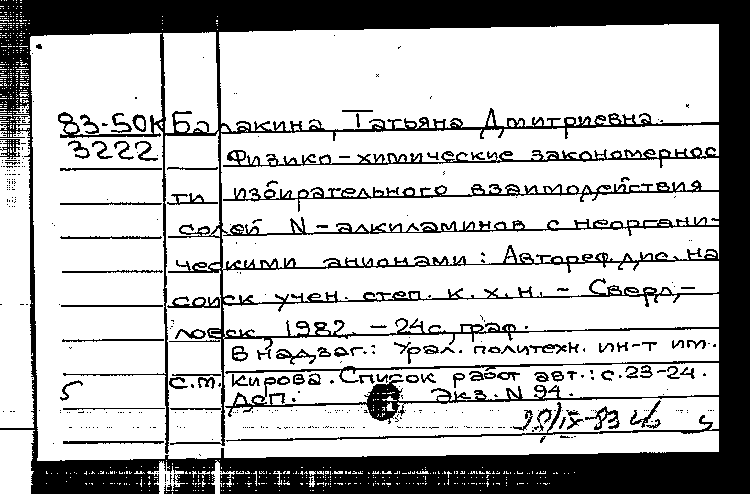 83-50К Балакина, Татьяна Дмитриевна.
3222 Физико-химические закономернос
ти избирательного взаимодействия
солей N-алкиламинов с неоргани-
ческими анионами: Автореф. дис. на
соиск учен. степ. к.х.н. - Сверд,-
ловск, 1982. - 24с, граф.
В надзаг.: Урал. политехн. ин-т им.
С.М. Кирова. Список работ авт.: с.23-24.
5 ДСП. Экз. N 94.
28/IX-83